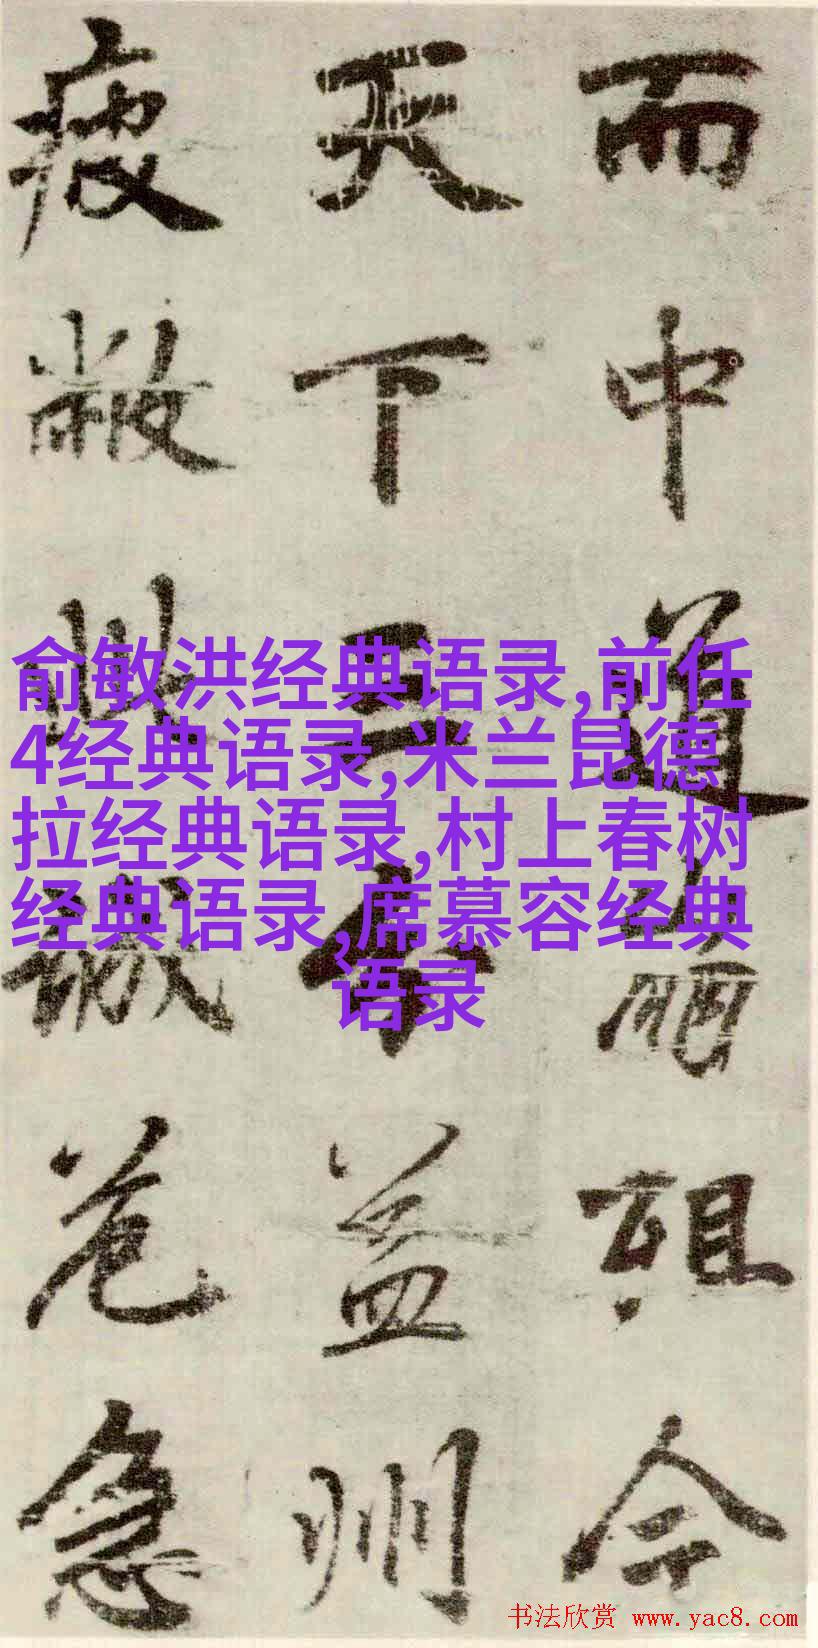 而中道崩殂今
天下三分益州
疲敝此誠危急
俞敏洪经典语录,前任
4经典语录,米兰昆德
拉经典语录,村上春树
经典语录,席慕容经典
语录
书法欣赏 www.yac8.com